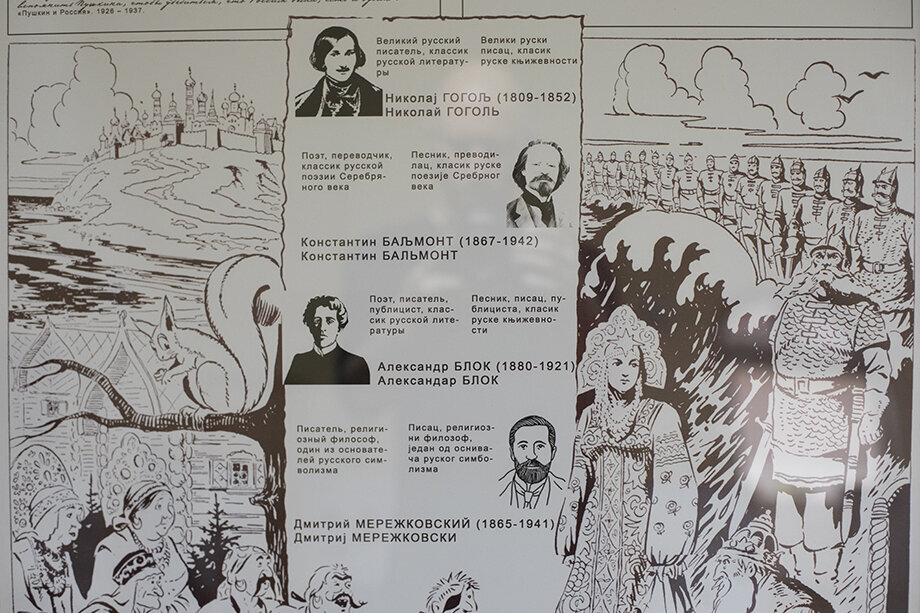 Пушкина, чтобы убедиться, что Россия была, есть и
«Пушкин и Россия». 1926 - 1937.
Великий русский
писатель, классик
русской литерату-
ры
Велики руски
писац, класик
руске књижевности
Николај ГОГОЉ (1809-1852)
Николай ГОГОЛЬ
Поэт, переводчик,
классик русской
поэзии Серебря-
ного века
Песник, преводи-
лац, класик руске
поезије Сребрног
века
Константин БАЉМОНТ (1867-1942)
Константин БАЛЬМОНТ
Поэт, писатель,
публицист, клас-
сик русской лите-
ратуры
Песник, писац, пу-
блициста, класик
руске књижевно-
сти
Александр БЛОК (1880-1921)
Александар БЛОК
Писатель, религи-
озный философ,
один из основате-
лей русского сим-
волизма
Писац, религиоз-
ни филозоф,
један од оснива-
ча руског симбо-
лизма
Дмитрий МЕРЕЖКОВСКИЙ (1865-1941)
Дмитриј МЕРЕЖКОВСКИ